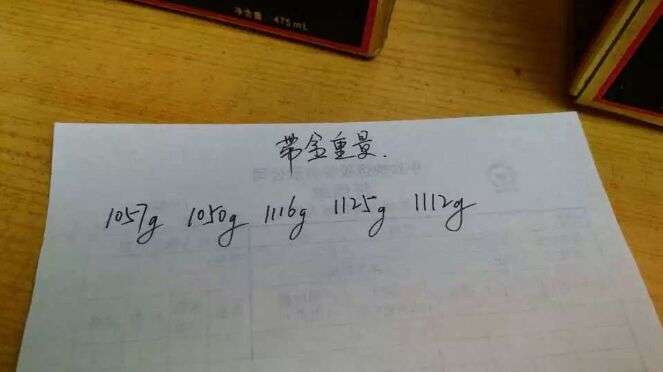 净含量 475mL
带盒重量.
1057g 1050g 1116g 1125g 1112g